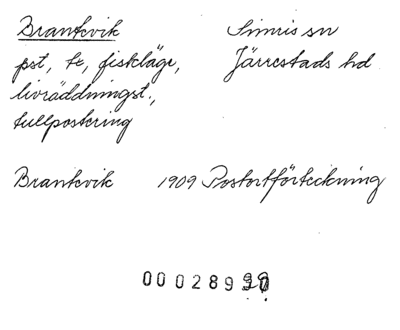 Brantevik Simris sn
pst, te, fiskläge, Järrestads hd
livräddningst.,
tullpostering
Brantevik 1909 Postortförteckning